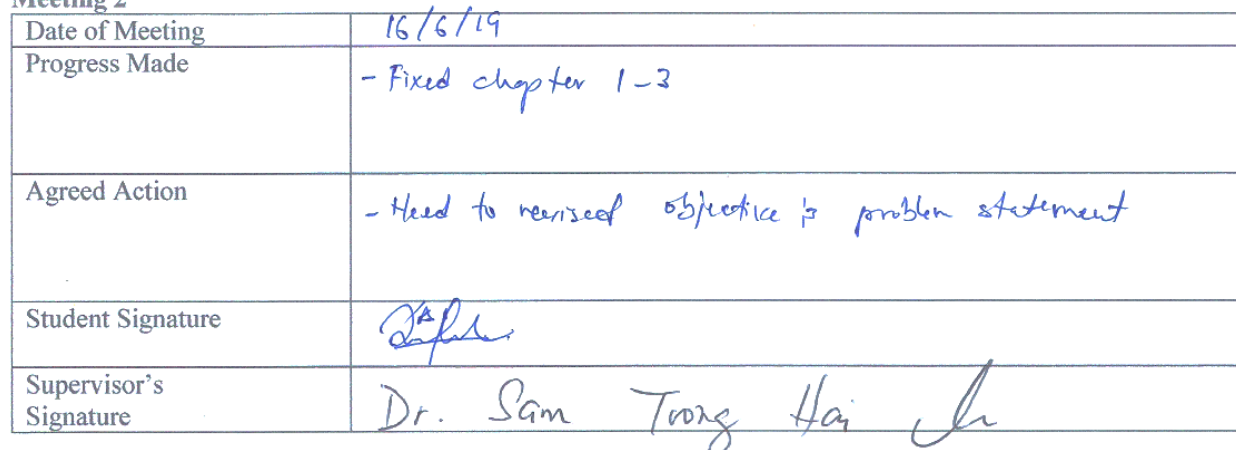 Meeting 2
Date of Meeting 16/6/19
Progress Made - Fixed chapter 1-3
Agreed Action - Need to revised objective & problem statement
Student Signature
Supervisor's Dr. Sam Trong Hai
Signature